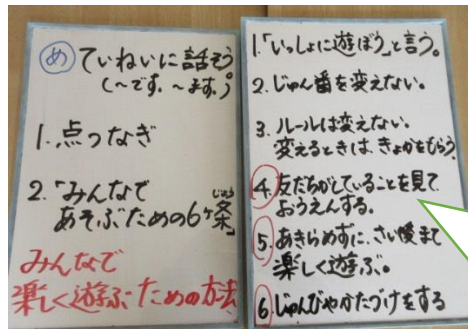 め ていねいに話そう。
(～です。～ます。)
1.点つなぎ
2.「みんなで
あそぶための6ヶ条」
じょう
みんなで
楽しく遊ぶための方法
1.「いっしょに遊ぼう」と言う。
2.じゅん番を変えない。
3.ルールは変えない。
変えるときは、きょかをもらう。
4.友だちがしていることを見て
おうえんする。
5.あきらめずに、さい後まで
楽しく遊ぶ。
6.じゅんびやかたづけをする